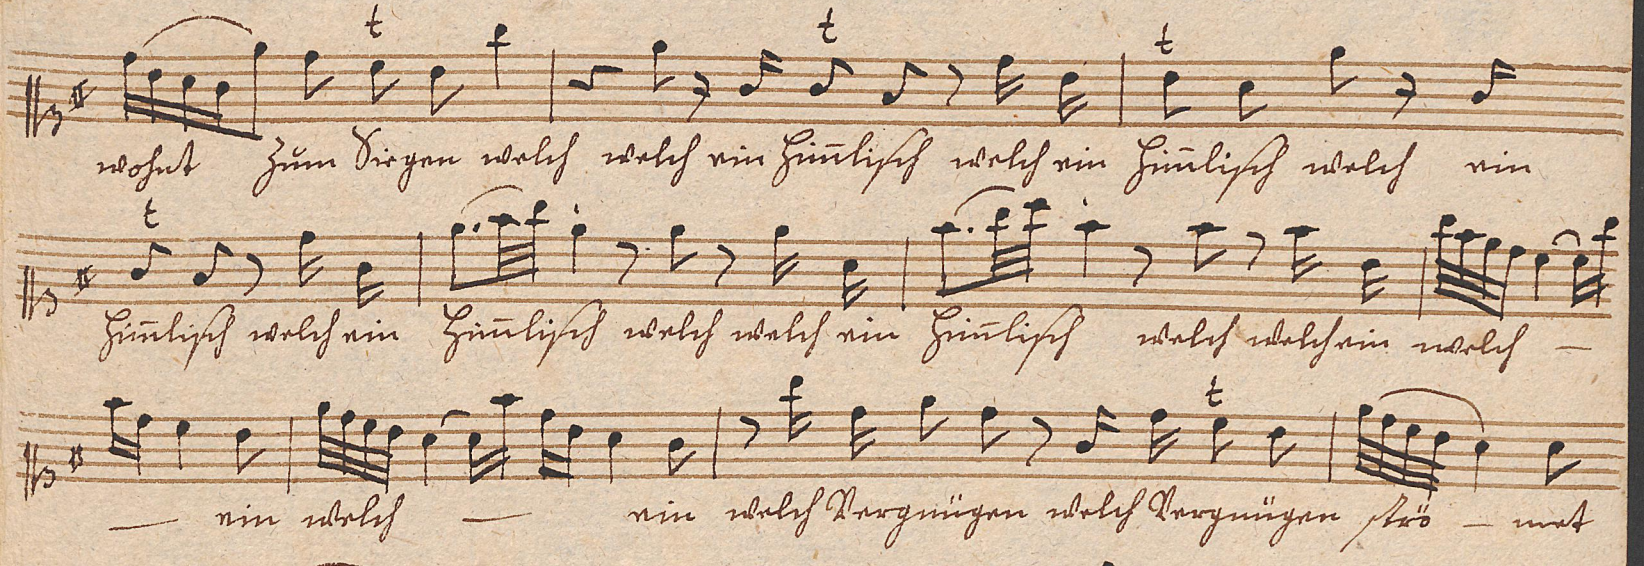 wohnt zum Siegen welch welch ein him̄lisch welch ein him̄lisch welch ein
him̄lisch welch ein him̄lisch welch welch ein him̄lisch welch welch ein welch —
— ein welch — ein welch Vergnügen welch Vergnügen strö – met